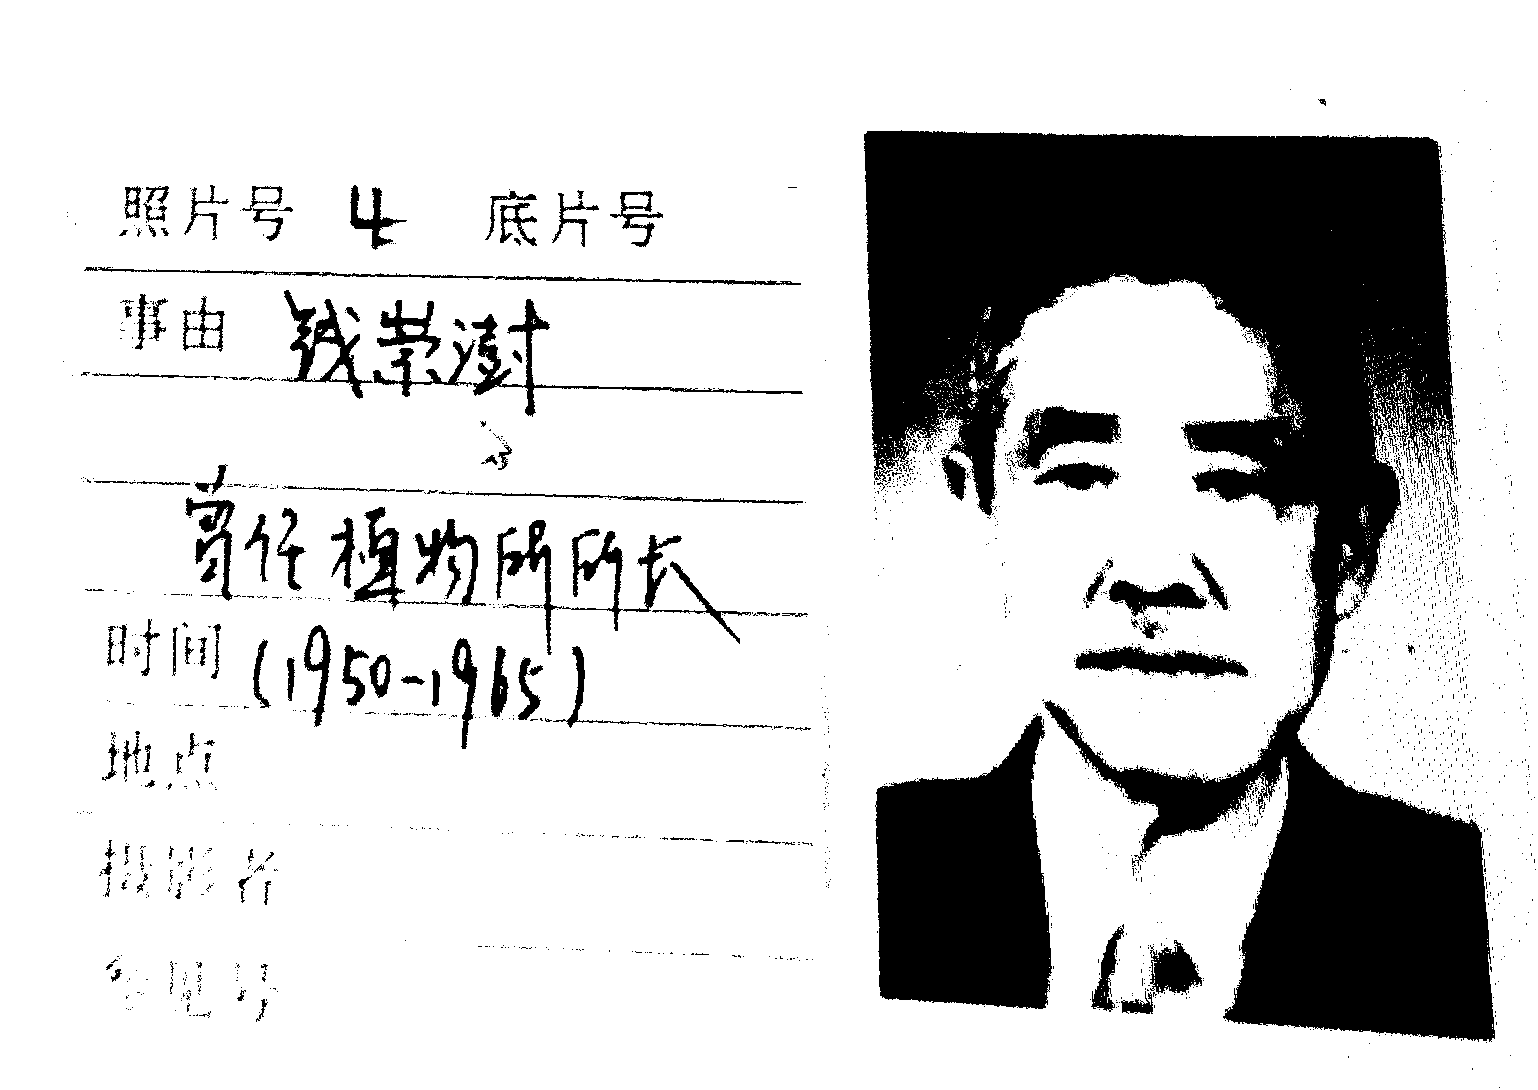 照片号 4 底片号
事由 钱崇澍
曾任植物所所长
时间 (1950-1965)
地点
摄影者
参见号